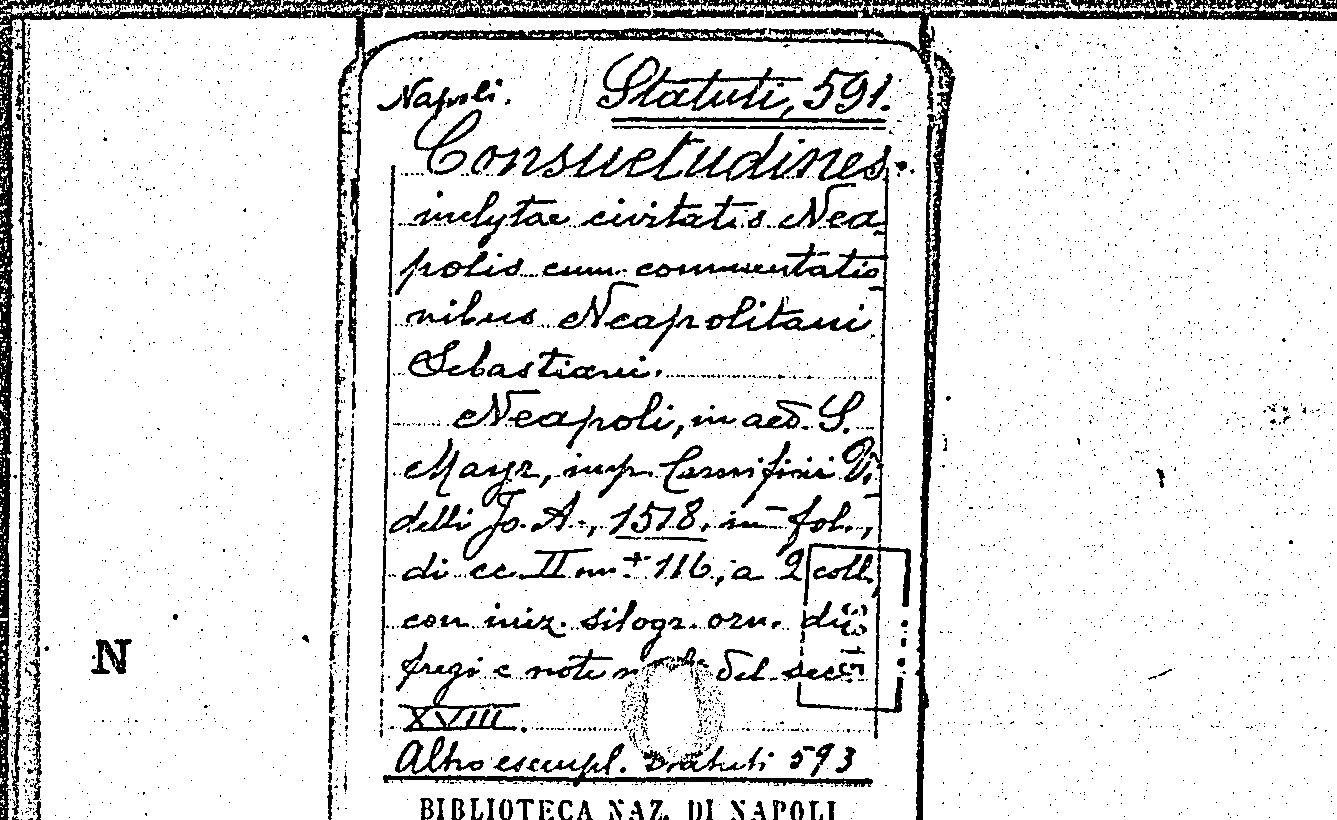 Napoli. Statuti, 591.
Consuetudines
inclytae civitatis Nea-
polis cum commentatio-
nibus Neapolitani
Sebastiani.
Neapoli, in aed. S.
Mayr, imp. Carnificii Vi-
delli Jo. A., 1518. in fol.,
di cc. II nn + 116, a 2 coll.
con iniz. silogr. orn. di
fregi e note del sec.
XVIII.
Altro esempl. Statuti 593
BIBLIOTECA NAZ. DI NAPOLI
N